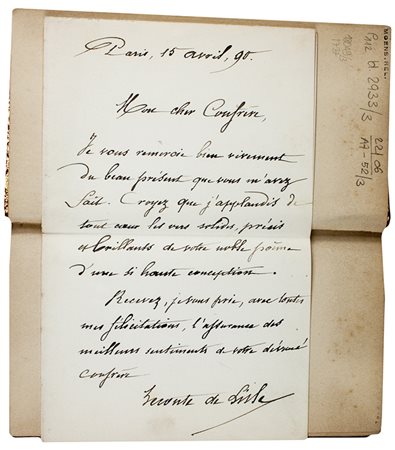 Paris, 15 avril, 90.
Mon cher Confrère,
Je vous remercie bien vivement
du beau présent que vous m'avez
fait. Croyez que j'applaudis de
tout cœur les vers solides, précis
et brillants de votre noble poëme
d'une si haute conception.
Recevez, je vous prie, avec toutes
mes félicitations, l'assurance des
meilleurs sentiments de votre dévoué
confrère
Leconte de Lisle
MOENS. REL.
P112 H 2933/3
22/06
A7-52/3